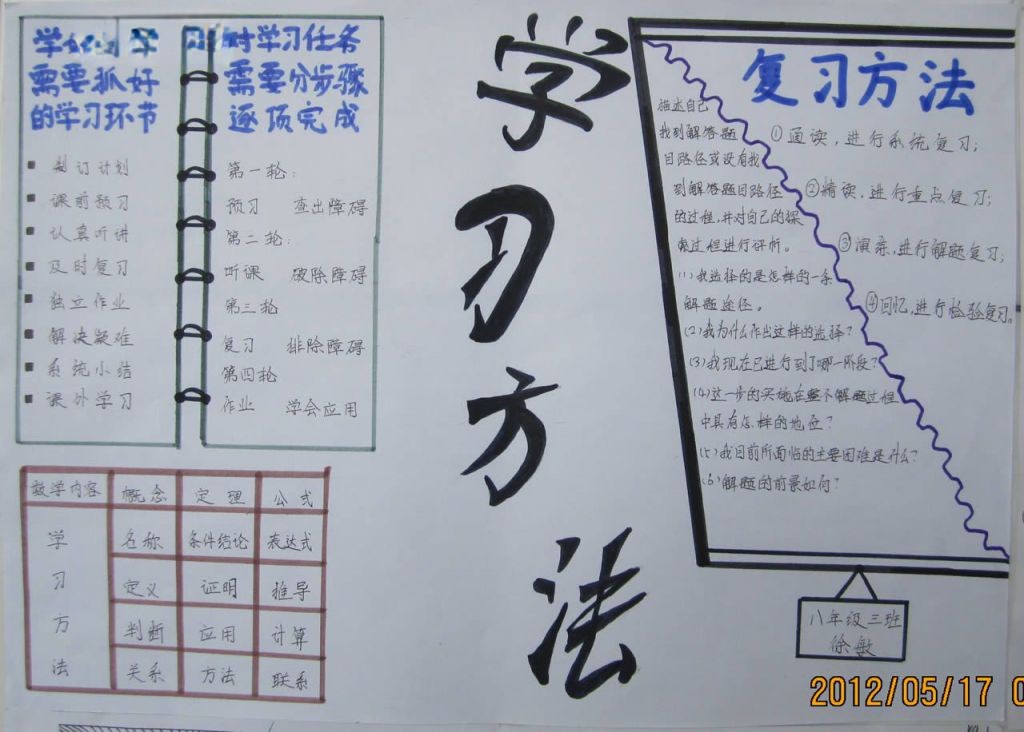 学习方法
需要抓好
的学习环节
制订计划
课前预习
认真听讲
及时复习
独立作业
解决疑难
系统小结
课外学习
对学习任务
需要分步骤
逐项完成
第一轮：
预习 查出障碍
第二轮：
听课 破除障碍
第三轮
复习 排除障碍
第四轮
作业 学会应用
教学内容 概念 定理 公式
学习方法 名称 条件结论 表达式
定义 证明 推导
判断 应用 计算
关系 方法 联系
复习方法
①通读，进行系统复习；
②精读，进行重点复习；
③演练，进行解题复习；
④回忆，进行检验复习。
描述自己
找到解答题
目路径或没有找
到解答题目路径
的过程，并对自己的探
索过程进行评析。
(1)我选择的是怎样的一条
解题途径。
(2)我为什么作出这样的选择？
(3)我现在已进行到了哪一阶段？
(4)这一步的实施在整个解题过程
中具有怎样的地位？
(5)我目前所面临的主要困难是什么？
(6)解题的前景如何？
八年级三班
徐敏
2012/05/17